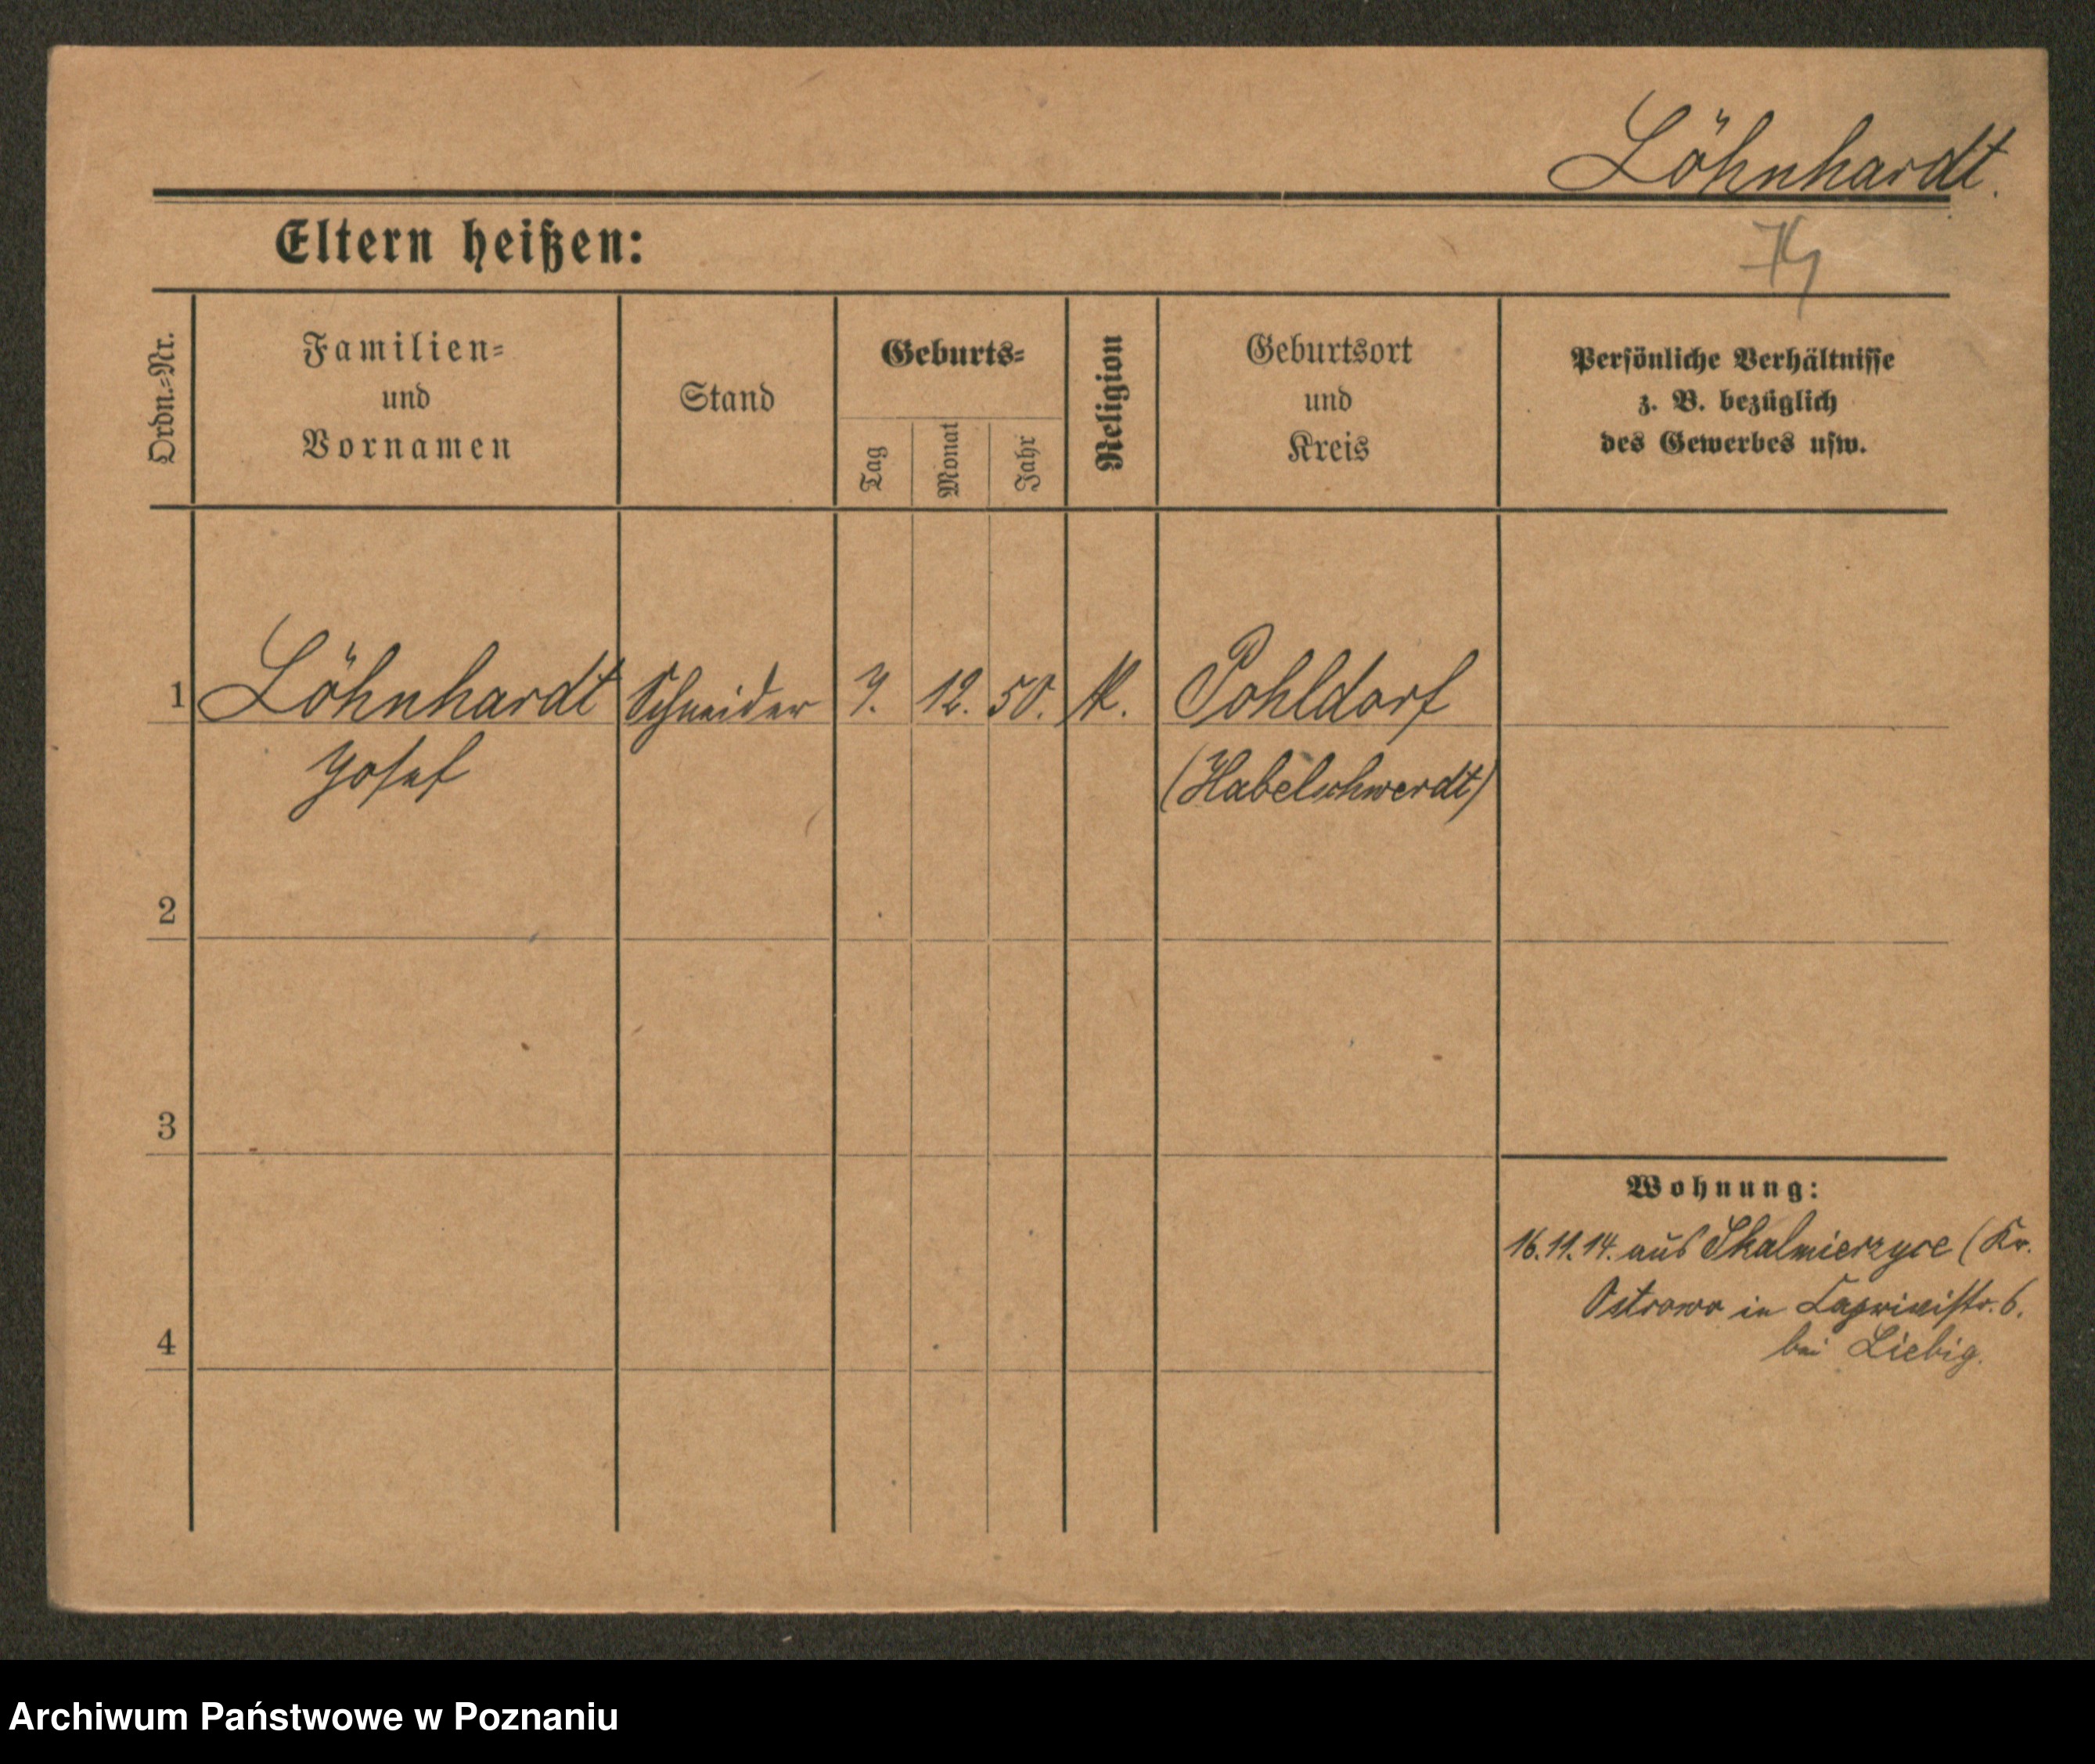 Löhnhardt.
Eltern heißen:
Ordn.-Nr.
Familien-
und
Vornamen
Stand
Geburts-
Tag
Monat
Jahr
Religion
Geburtsort
und
Kreis
Persönliche Verhältnisse
z. B. bezüglich
des Gewerbes usw.
1 Löhnhardt Schneider 7. 12. 50. K. Pohldorf
Josef (Habelschwerdt)
2
3
Wohnung:
16.11.14. aus Skalmierzyce (Kr.
Ostrowo in 6.
4
bei Liebig.
Archiwum Państwowe w Poznaniu